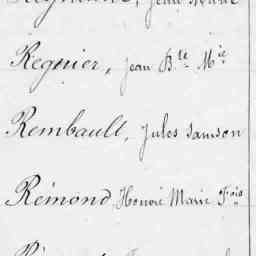 Regnier, Jean Bte Mie
Rembault, Jules Samson
Rémond, Honoré Marie Fois